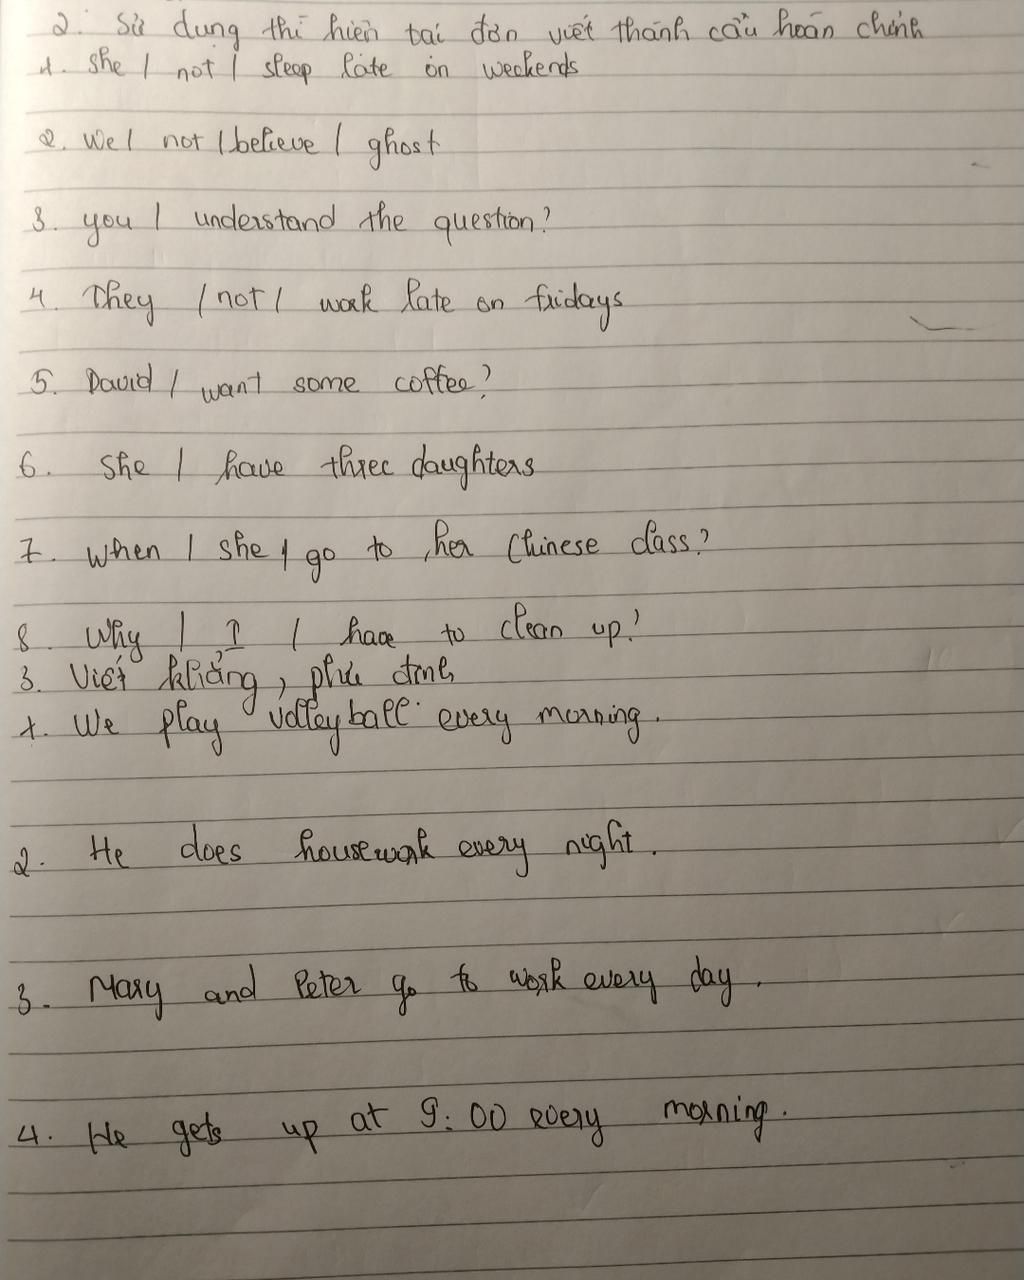 2. Sử dụng thì hiện tại đơn viết thành câu hoàn chỉnh
1. She / not / sleep late on weekends
2. We / not / believe / ghost
3. you / understand the question?
4. They / not / work late on fridays
5. David / want some coffee?
6. She / have three daughters
7. When / she / go to her Chinese class?
8. Why / I / have to clean up?
3. Viết khẳng, phủ định
1. We play volleyball every morning.
2. He does housework every night.
3. Mary and Peter go to work every day.
4. He gets up at 9:00 every morning.